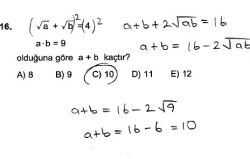 16. (√a + √b)² = (4)²
a + b + 2√ab = 16
a·b = 9
a + b = 16 - 2√ab
olduğuna göre a + b kaçtır?
A) 8 B) 9 C) 10 D) 11 E) 12
a+b = 16 - 2√9
a+b = 16 - 6 = 10